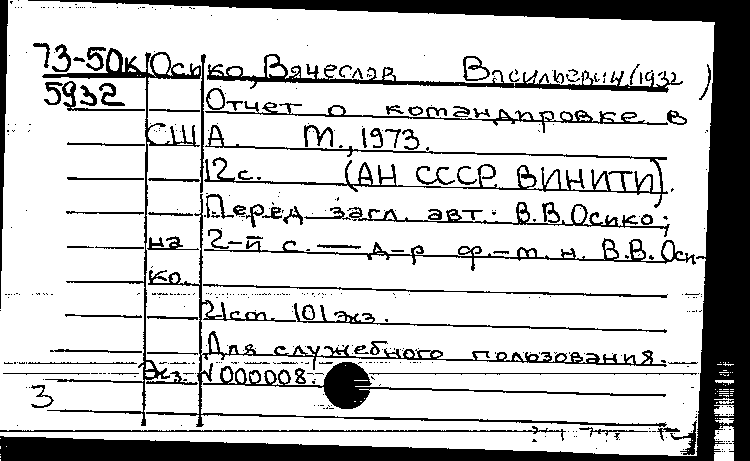 73-50к Осико, Вячеслав Васильевич (1932 )
5932 Отчет о командировке в
США. М., 1973.
12 с. (АН СССР. ВИНИТИ).
Перед загл. авт.: В.В. Осико;
на 2-й с. — д-р ф.-м. н. В.В. Оси-
ко.
21 см. 101 экз.
Для служебного пользования.
Экз. № 000008.
3